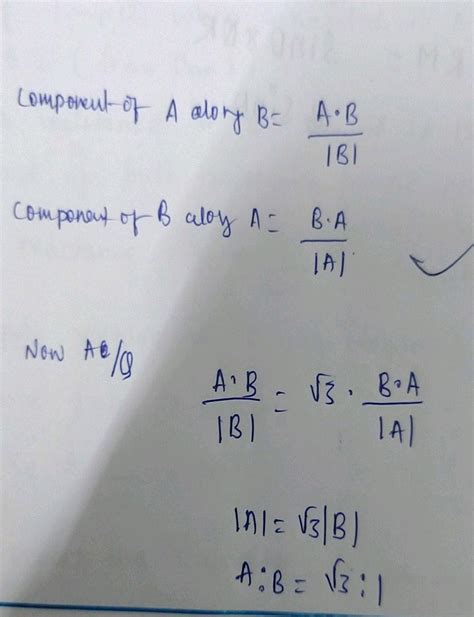 Component of A along B = A·B / |B|
Component of B along A = B·A / |A|
Now AC/Q
A·B / |B| = √3 · B·A / |A|
|A| = √3|B|
A:B = √3:1